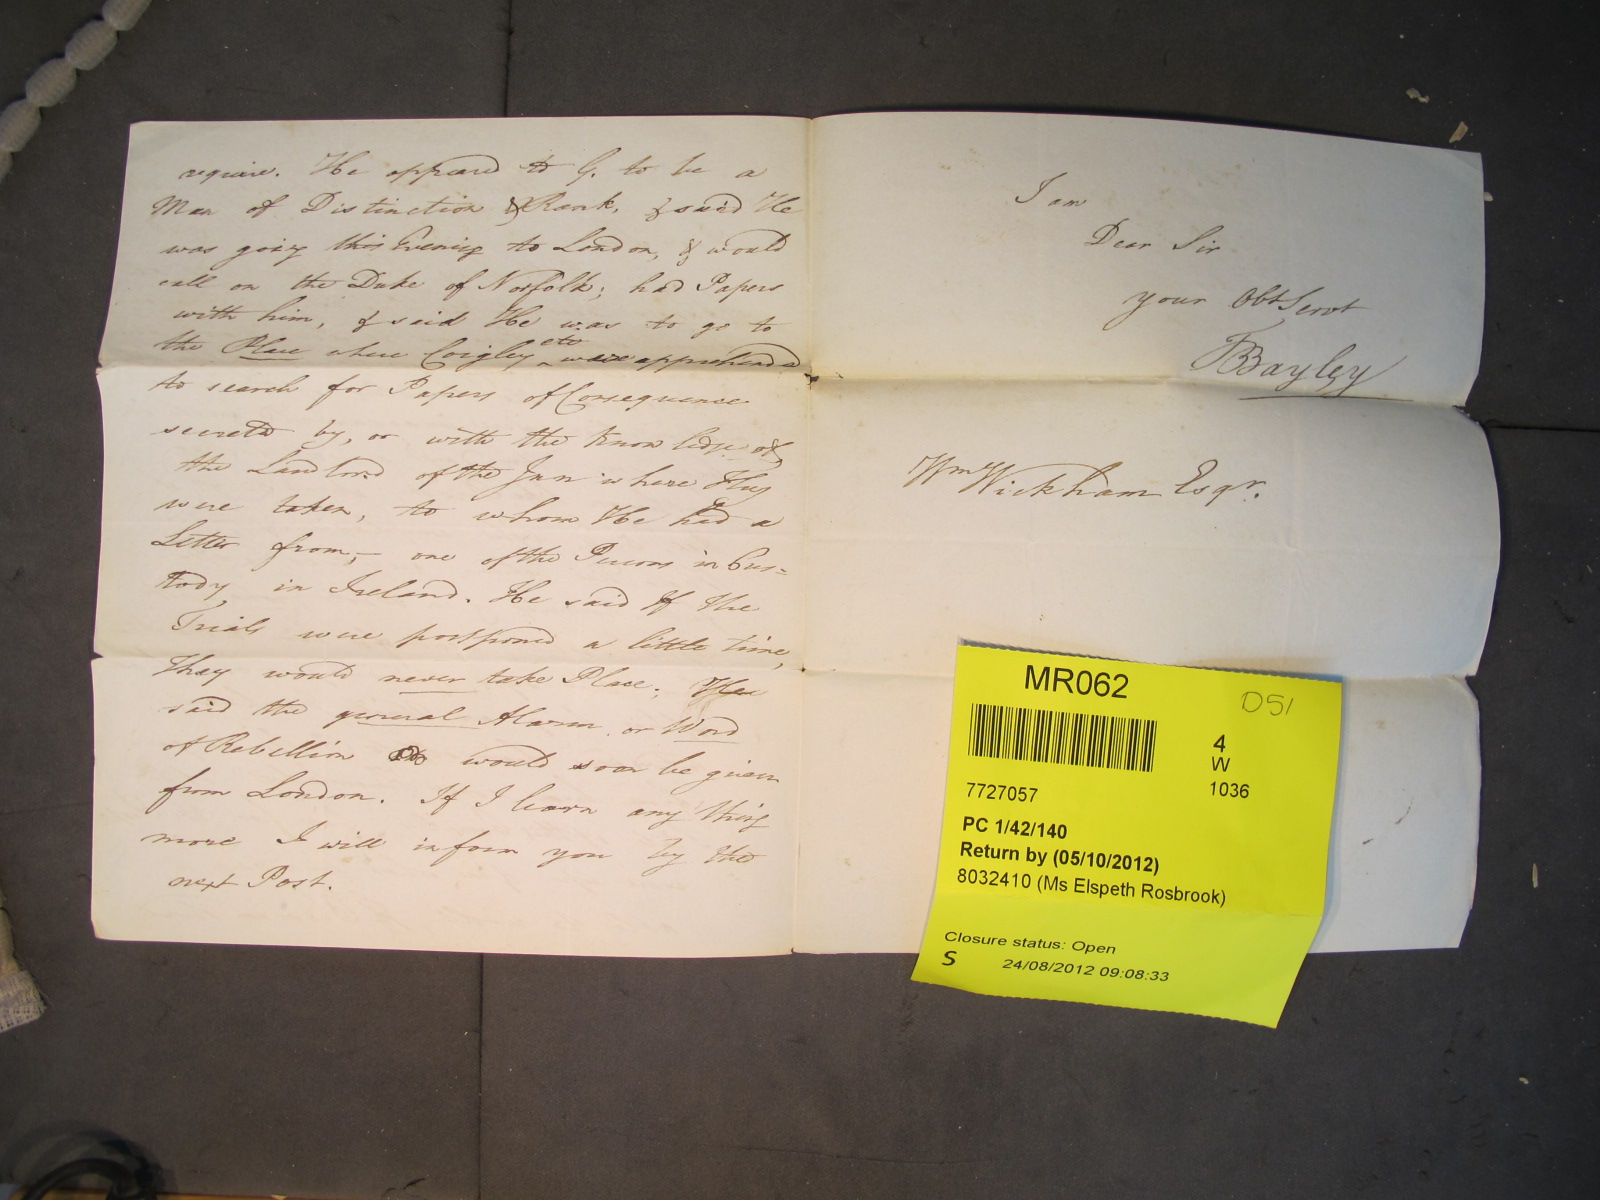 require. He appeared to G. to be a
Man of Distinction & Rank, & said He
was going this Evening to London, & would
call on the Duke of Norfolk; had Papers
with him, & said He was to go to
the Place where Coigley etc were apprehended
to search for Papers of Consequence
secreted by, or with the knowledge of,
the Landlord of the Inn where they
were taken, to whom He had a
Letter from,- one of the Persons in Cus=
tody in Ireland. He said If the
Trials were postponed a little time,
they would never take Place; He
said the general Alarm or Word
of Rebellion would soon be given
from London. If I learn any thing
more I will inform you by the
next Post.
I am
Dear Sir
your Obt Servt
TBBayley
Wm Wickham Esqr.
MR062
D51
4
W
1036
7727057
PC 1/42/140
Return by (05/10/2012)
8032410 (Ms Elspeth Rosbrook)
Closure status: Open
S 24/08/2012 09:08:33